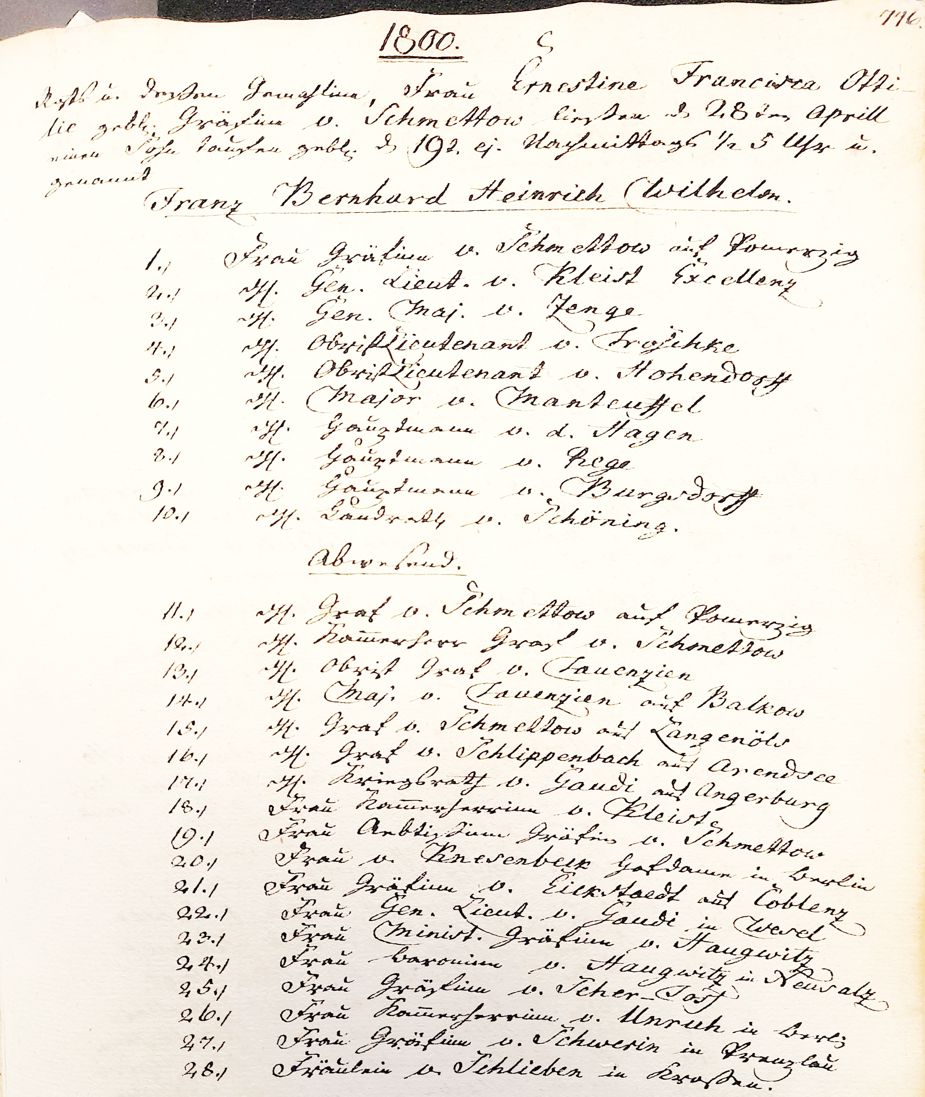 776.
1800.
u. dessen Gemahlinn, Frau Ernestine Francisca Otti-
lie gebh. Gräfinn v. Schmettow liessen d 28ten Aprill
einen Sohn taufen gebh. d 19t. ej. Nachmittags ½ 5 Uhr u.
genannt
Franz Bernhard Heinrich Wilhelm.
1., Frau Gräfinn v. Schmettow auf Pomerzig
2., H. Gen. Lieut. v. Kleist Excellenz
3., H. Gen. Maj. v. Zenge
4., H. ObristLieutenant v. Tröschke
5., H. ObristLieutenant v. Hohendorff
6., H. Major v. Manteuffel
7., H. Hauptmann v. d. Hagen
8., H. Hauptmann v. Rege
9., H. Hauptmann v. Burgsdorff
10., H. Landrath v. Schöning.
Abwesend.
11., H. Graf v. Schmettow auf Pomerzig
12., H. Kam̄erherr Graf v. Schmettow
13., H. Obrist Graf v. Tauenzien
14., H. Maj. v. Tauenzien auf Balkow
15., H. Graf v. Schmettow auf Langenöls
16., H. Graf v. Schlippenbach auf Arendsee
17., H. Kriegsrath v. Gaudi auf Angerburg
18., Frau Kam̄erherrinn v. Kleist
19., Frau Aebtißinn Gräfin v. Schmettow
20., Frau v. Knesenbeck Hofdame in Berlin
21., Frau Gräfinn v. Eickstaedt aus Coblenz
22., Frau Gen. Lieut. v. Gaudi in Wesel
23., Frau Minist. Gräfinn v. Haugwitz
24., Frau Baroninn v. Haugwitz in Neusalz
25., Frau Gräfinn v. Scher-Tost
26., Frau Kam̄erherrinn v. Unruh in Berlin
27., Frau Gräfinn v. Schwerin in Prenzlau
28., Fräulein v. Schlieben in Kroßen.